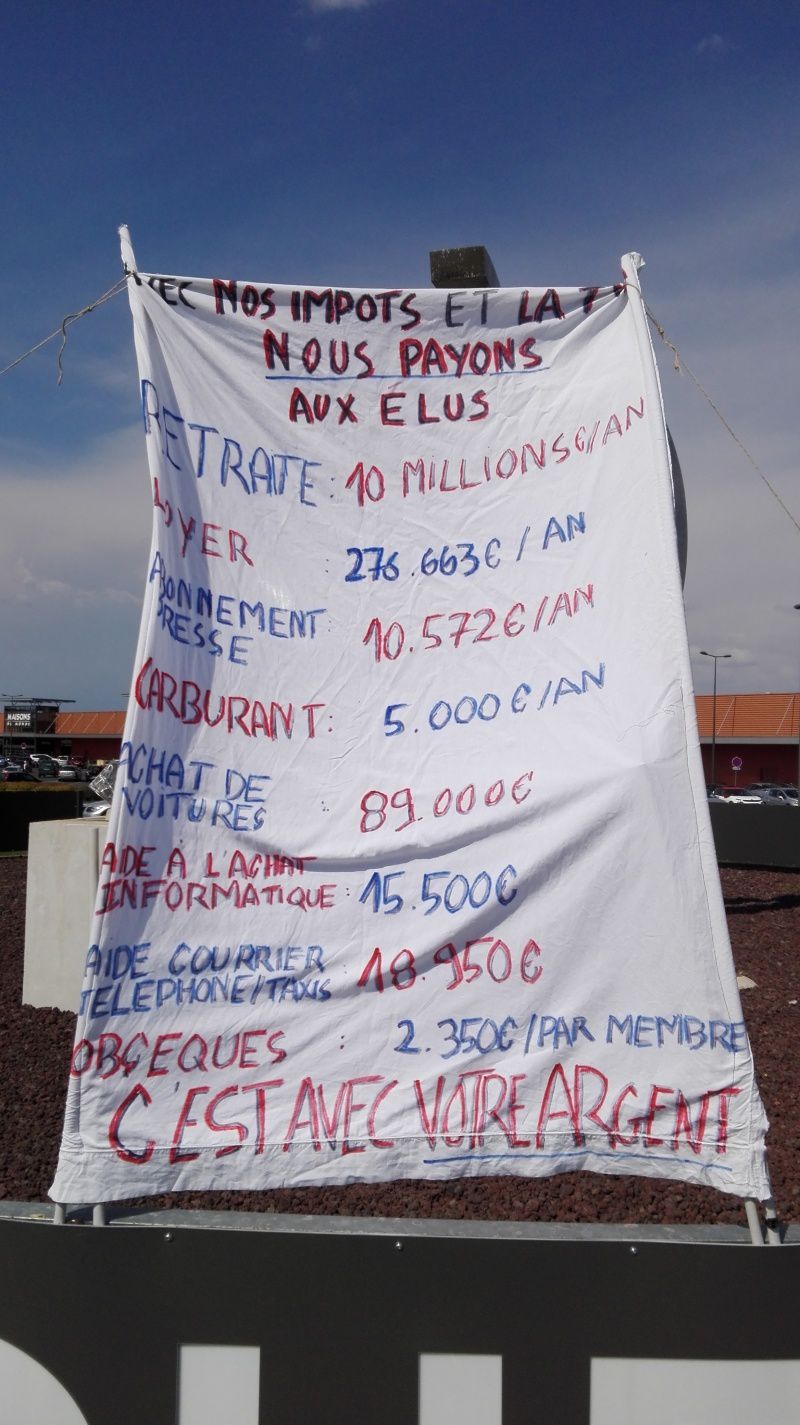 EC NOS IMPOTS ET LA
NOUS PAYONS
AUX ELUS
RETRAITE: 10 MILLIONS€/AN
LOYER : 276.663€ / AN
ABONNEMENT
PRESSE : 10.572€/AN
CARBURANT: 5.000€/AN
ACHAT DE
VOITURES : 89.000€
AIDE À L'ACHAT
INFORMATIQUE : 15.500€
AIDE COURRIER
TELEPHONE/TAXIS : 18.950€
OBÇEQUES : 2.350€/PAR MEMBRE
C'EST AVEC VOTRE ARGENT
MAISONS
DU MONDE